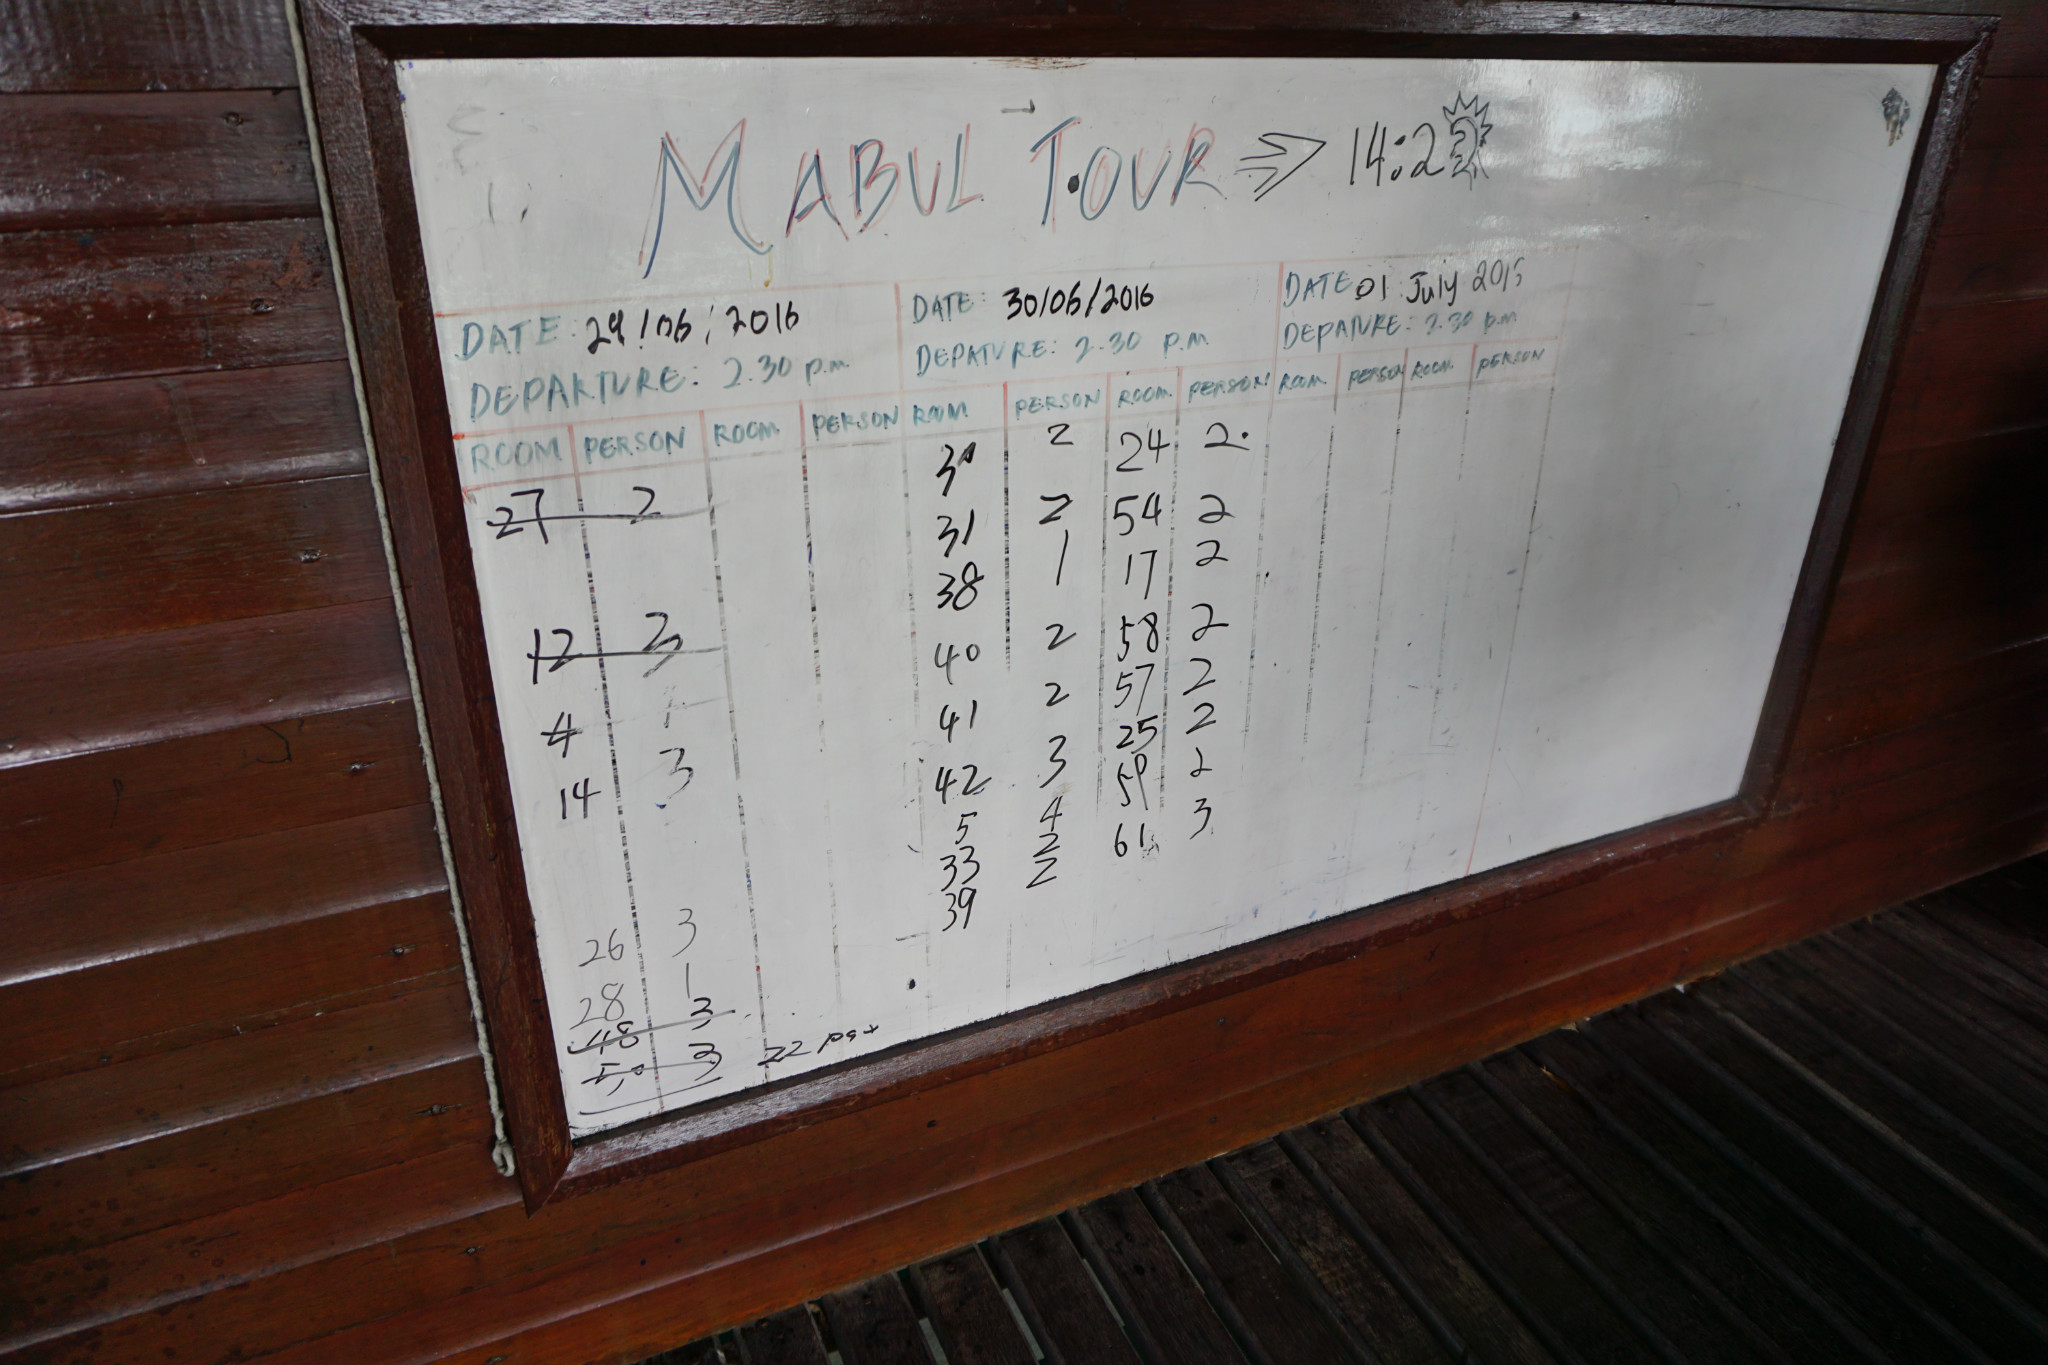 MABUL TOUR → 14:2
DATE: 29/06/2016
DEPARTURE: 2.30 p.m.
ROOM PERSON ROOM PERSON
27 2
12
4
14 3
26 3
28 1
48 3
50 3
22 pax
DATE: 30/06/2016
DEPATURE: 2.30 p.m.
ROOM PERSON ROOM PERSON
2 24 2
31 2 54 2
38 1 17 2
40 2 58 2
41 2 57 2
42 3 25 2
5 4 2
33 2 61 3
39 2
DATE 01 July 2015
DEPATURE: 2.30 p.m
ROOM PERSON ROOM PERSON